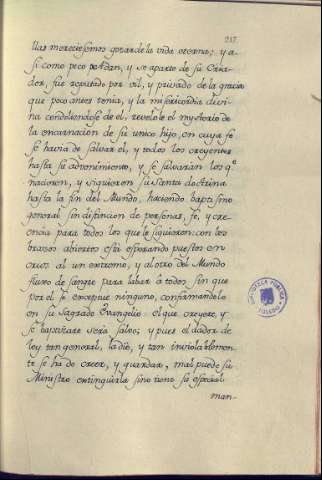 217.
llas mereciesemos gozar de la vida eterna; y a-
si como peco Adan, y se aparto de su Cria-
dor, fue reputado por vil, y privado de la gracia
que poco antes tenia, y la misericordia divi-
na condoliendose de el, revelole el mysterio de
la encarnacion de su unico hijo, en cuya fe
se havia de salvar el, y todos los creyentes
hasta su advenimiento, y se salvarán los q.e
nacieron, y siguieron su santa doctrina
hasta la fin del Mundo, haciendo baptismo
general sin distincion de personas, fe, y cre-
encia para todos los que le siguieron: con los
brazos abiertos está esperando puestos en
cruz al un extremo, y al otro del Mundo
fluvio de sangre para labar á todos, sin que
por el se exceptue ninguno, confirmandolo
en su Sagrado Evangelio: el que creyere, y
se baptizare será salvo; y pues el dador de
ley tan general, la dio, y tan inviolablemen-
te se ha de creer, y guardar, mal puede su
Ministro extinguirla sino tiene su especial
man-
BIBLIOTECA PUBLICA
TOLEDO